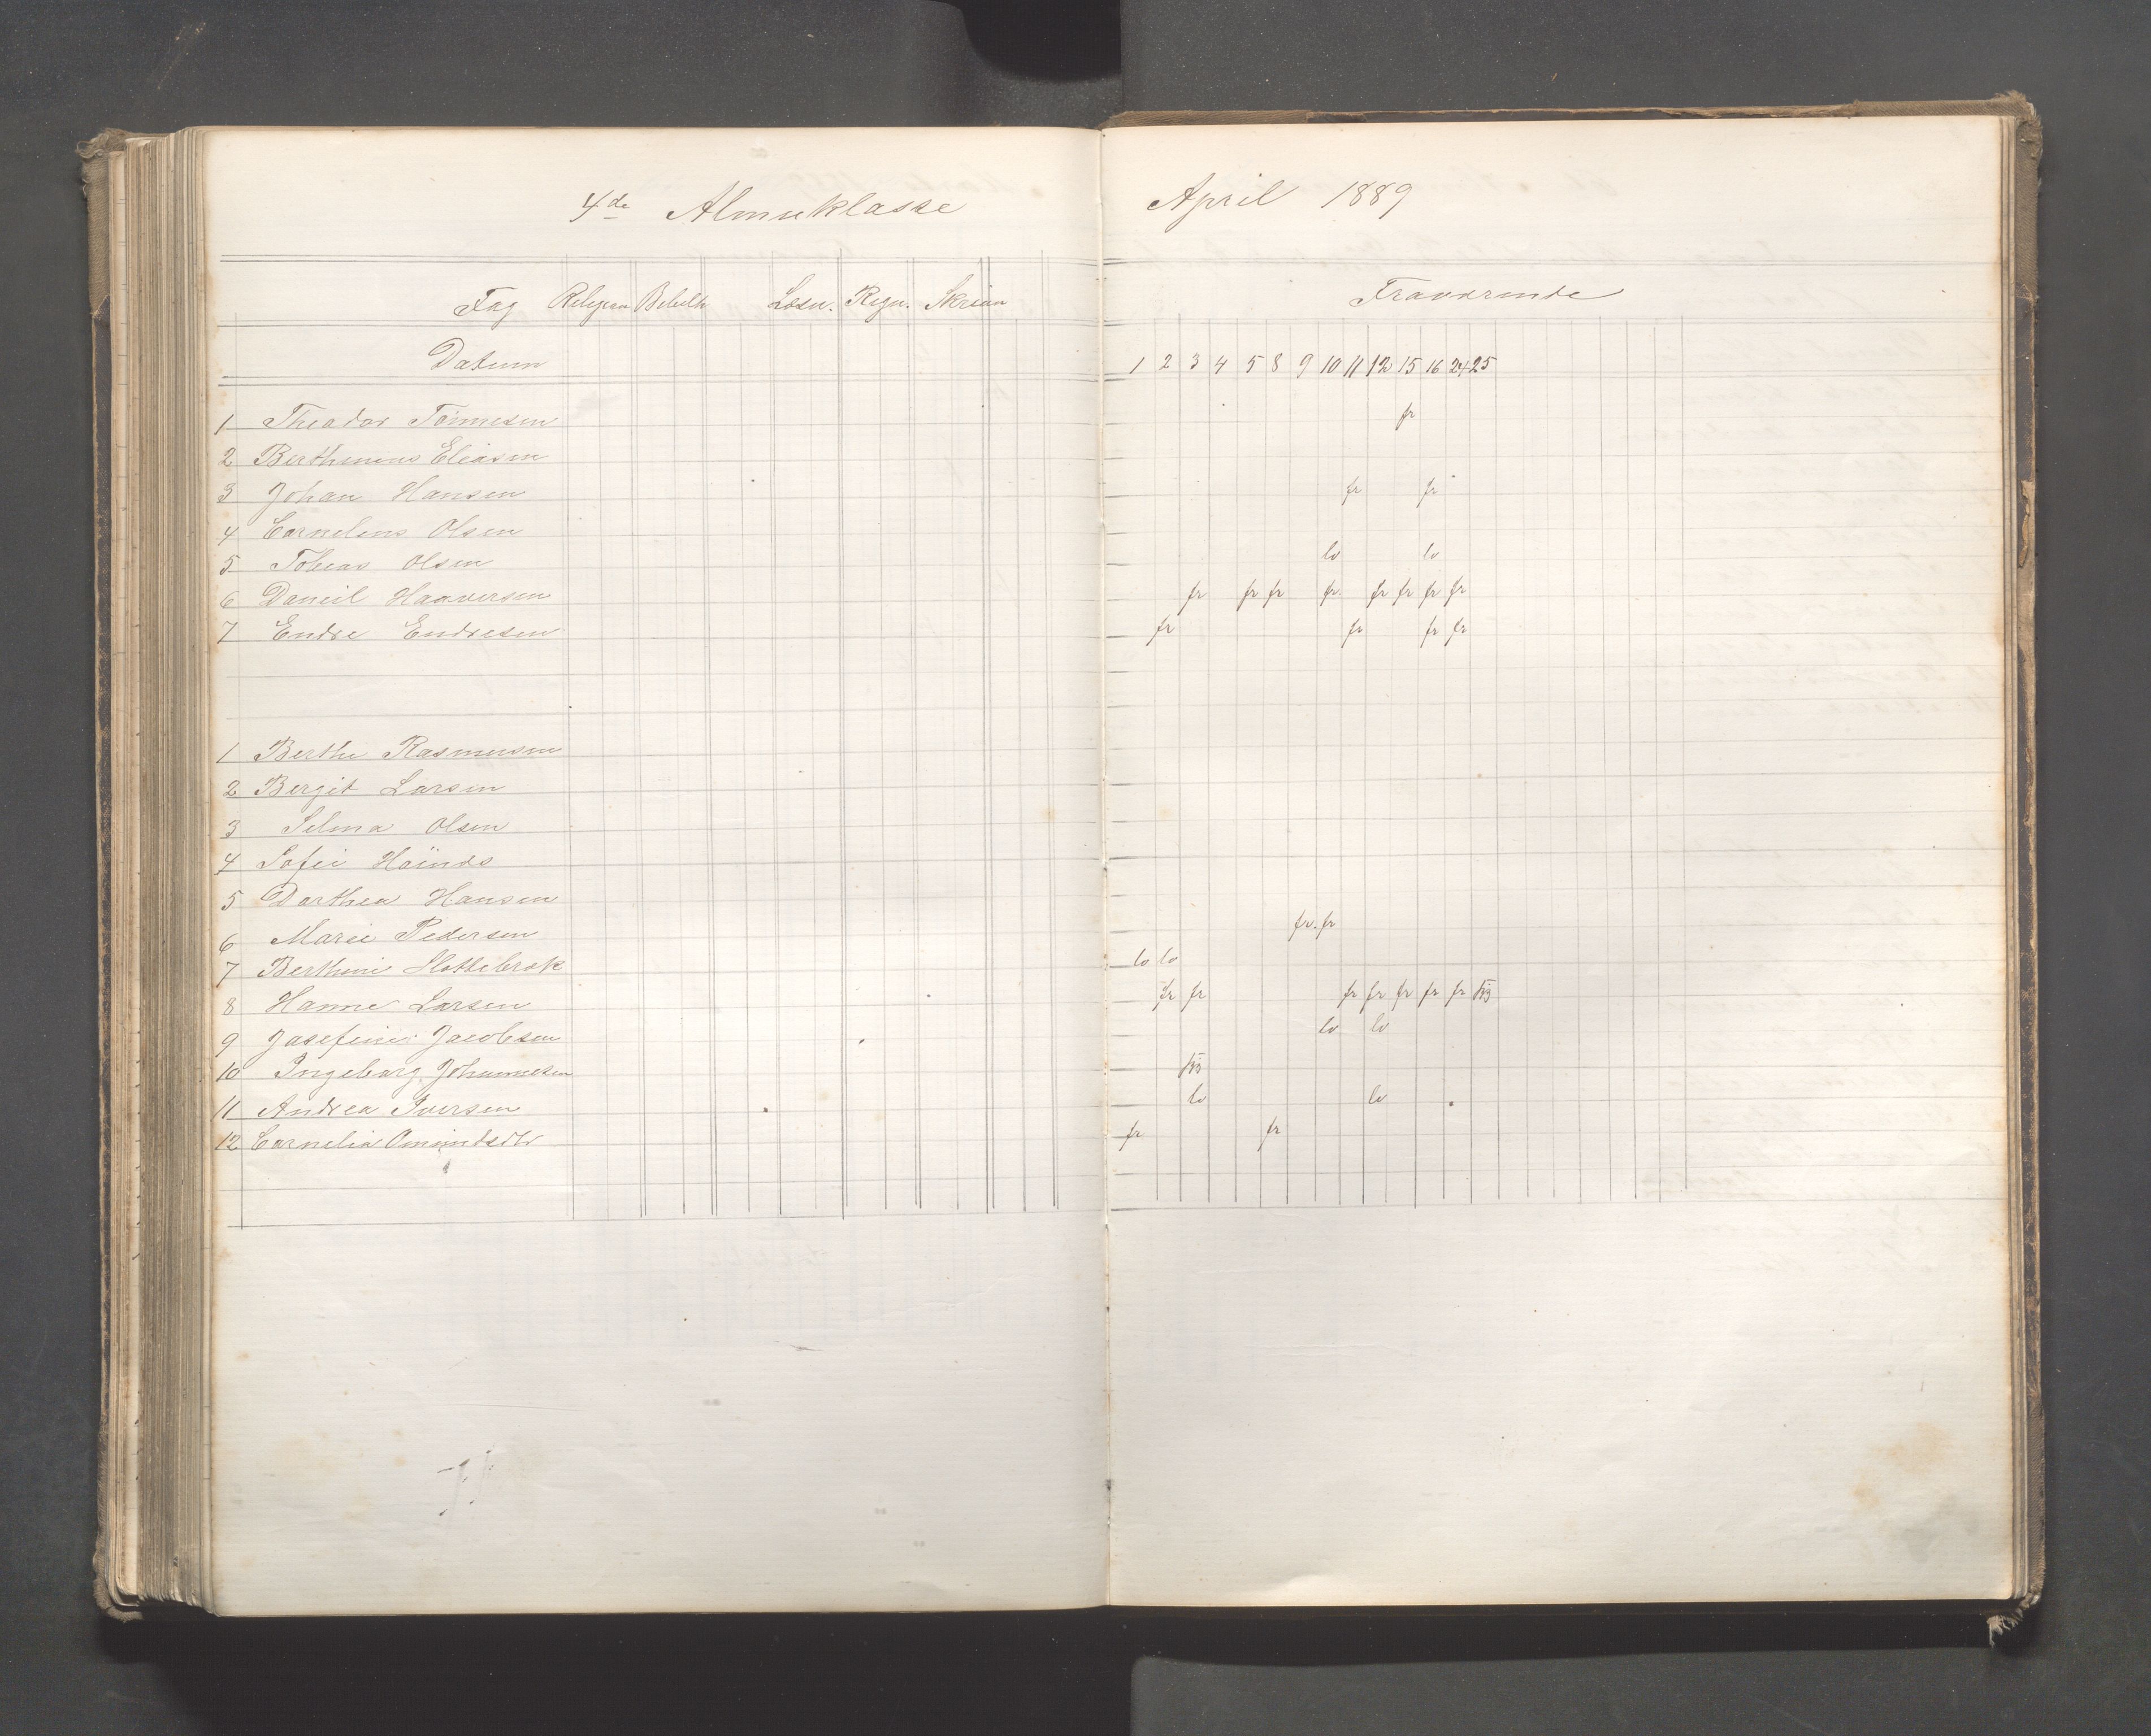 4de Almueklasse
April 1889
Fag Religion Bibelh Læsn. Regn. Skrivn
Fraværende
Datum
1 2 3 4 5 8 9 10 11 12 15 16 24 25
1 Theodor Tönnesen fr
2 Berthinius Eliasen
3 Johan Hansen fr fr
4 Cornelius Olsen
5 Tobias Olsen lo lo
6 Daniel Haaversen fr fr fr fr. fr fr fr fr
7 Endre Endresen fr fr fr fr
1 Berthe Rasmussen
2 Bergit Larsen
3 Selma Olsen
4 Sofie
5 Dorthea Hansen
6 Marie Pedersen fr. fr
7 Berthine Slottebrok lo lo
8 Hanne Larsen fr fr fr fr fr fr fr
9 Josefine Jacobsen lo lo
10 Ingeborg Johannesen
11 Andrea Iversen lo lo
12 Cornelia fr fr